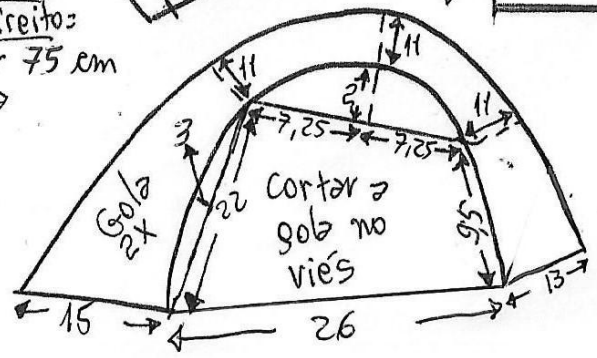 reito:
75 cm
11
11
2
11
7,25
7,25
3
Gola
2x
22
cortar a
gola no
viés
9,5
15
26
13